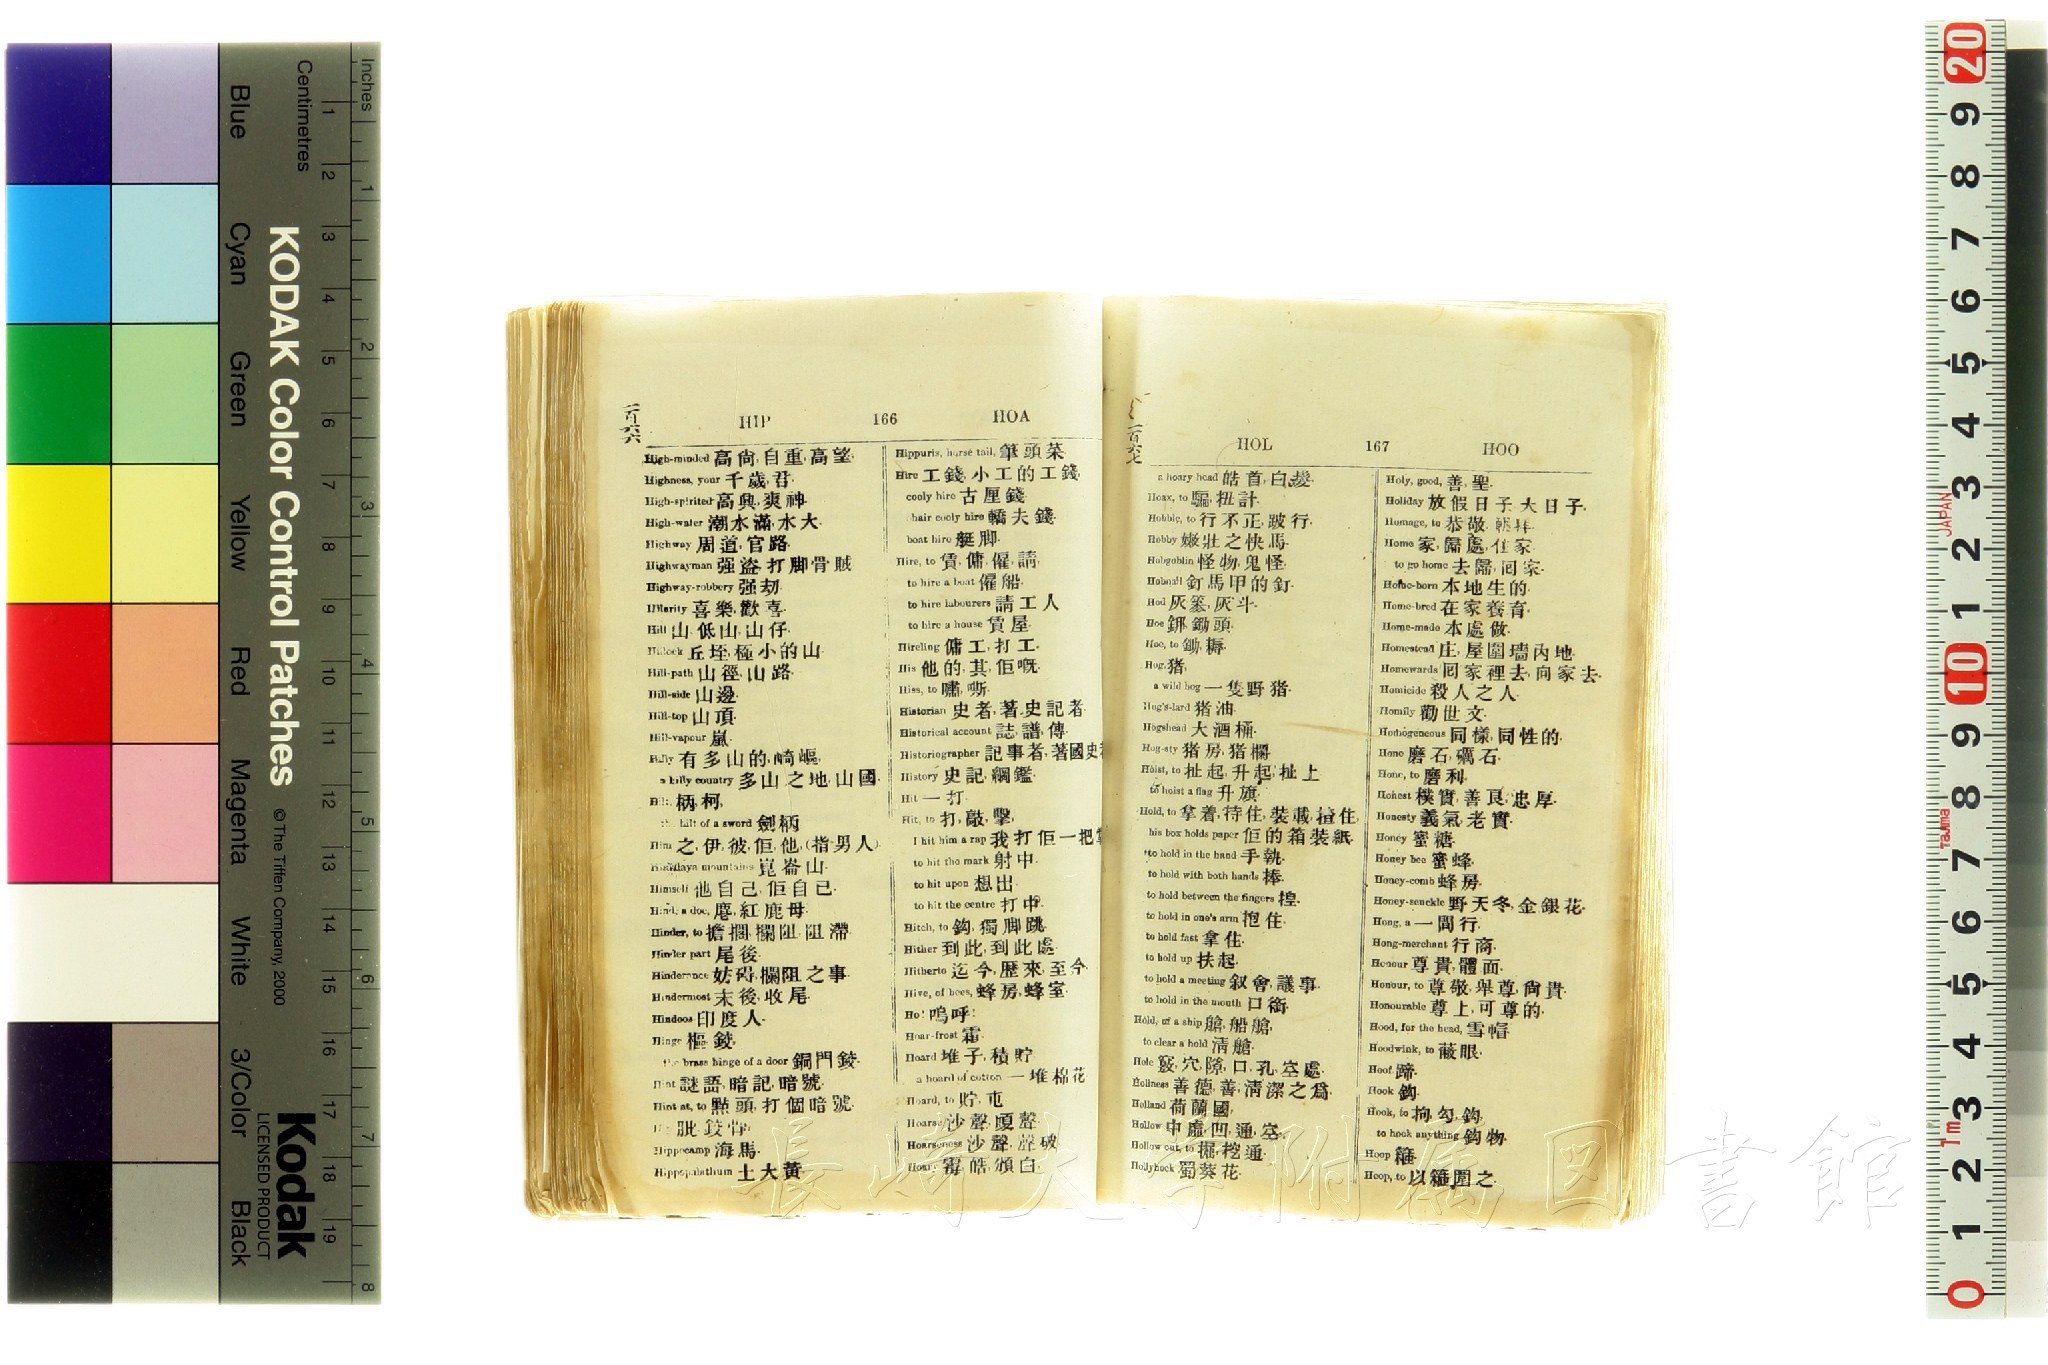 一百六六
HIP 166 HOA
High-minded 高尙, 自重, 高望.
Highness, your 千歲, 君.
High-spirited 高興, 爽神.
High-water 潮水滿, 水大.
Highway 周道, 官路.
Highwayman 强盜, 打脚骨賊
Highway-robbery 强刼.
Hilarity 喜樂, 歡喜.
Hill 山, 低山, 山仔.
Hillock 丘垤, 極小的山.
Hill-path 山徑, 山路.
Hill-side 山邊.
Hill-top 山頂.
Hill-vapour 嵐.
Hilly 有多山的, 崎嶇.
a hilly country 多山之地, 山國.
Hilt 柄, 柯,
the hilt of a sword 劍柄
Him 之, 伊, 彼, 佢, 他, (指男人)
Himalaya mountains 崑崙山.
Himself 他自己, 佢自已.
Hind, a doe, 麀, 紅鹿母.
Hinder, to 擔擱, 攔阻, 阻滯.
Hinder part 尾後.
Hinderance 妨碍, 攔阻之事.
Hindermost 末後, 收尾.
Hindoos 印度人.
Hinge 樞, 鉸.
the brass hinge of a door 銅門鉸.
Hint 謎語, 暗記, 暗號.
Hint at, to 點頭, 打個暗號.
Hippocamp 海馬.
Hippopalathum 土大黃.
Hippuris, horse tail, 筆頭菜
Hire 工錢, 小工的工錢,
cooly hire 古厘錢.
chair cooly hire 轎夫錢.
boat hire 艇脚.
Hire, to 賃, 傭, 僱, 請.
to hire a boat 僱船.
to hire labourers 請工人
to hire a house 賃屋.
Hireling 傭工, 打工.
His 他的, 其, 佢嘅.
Hiss, to 嘯, 嘶.
Historian 史者, 著史記者.
Historical account 誌, 譜, 傳.
Historiographer 記事者, 著國史
History 史記, 綱鑑.
Hit 一打.
Hit, to 打, 敲, 擊,
I hit him a rap 我打佢一把
to hit the mark 射中.
to hit upon 想出.
to hit the centre 打中.
Hitch, to 鈎, 獨脚跳.
Hither 到此, 到此處.
Hitherto 迄今, 歷來, 至今.
Hive, of bees, 蜂房, 蜂室.
Ho! 嗚呼!
Hoar-frost 霜.
Hoard 堆子, 積貯.
a hoard of cotton 一堆棉花
Hoard, to 貯, 屯.
Hoarse 沙聲, 嗄聲.
Hoarseness 沙聲, 聲破.
Hoar 皓, 頒白.
一百六七
HOL 167 HOO
a hoary head 皓首, 白髮.
Hoax, to 騙, 扭計.
Hobble, to 行不正, 跛行.
Hobby 嫩壯之快馬.
Hobgoblin 怪物, 鬼怪.
Hobnail 釘馬甲的釘.
Hod 灰, 灰斗.
Hoe 鋤頭.
Hoe, to 鋤, 耨.
Hog 猪,
a wild hog 一隻野猪.
Hog's-lard 猪油.
Hogshead 大酒桶.
Hog-sty 猪房, 猪欄.
Hoist, to 扯起, 升起, 扯上
to hoist a flag 升旗.
Hold, to 拿着, 待住, 裝載, 揸住,
his box holds paper 佢的箱裝紙.
to hold in the hand 手執.
to hold with both hands 捧.
to hold between the fingers
to hold in one's arm 抱住.
to hold fast 拿住.
to hold up 扶起.
to hold a meeting 叙會, 議事.
to hold in the mouth 口銜.
Hold, of a ship 艙, 船艙,
to clear a hold 淸艙.
Hole 竅, 穴, 隙, 口, 孔, 空處.
Holiness 善德, 善, 淸潔之爲.
Holland 荷蘭國,
Hollow 中虛, 凹, 通, 空.
Hollow out, to 掘, 挖通.
Hollyhock 蜀葵花.
Holy, good, 善, 聖.
Holiday 放假日子, 大日子.
Homage, to 恭敬, 朝拜.
Home 家, 歸處, 住家.
to go home 去歸, 囘家.
Home-born 本地生的.
Home-bred 在家養育.
Home-made 本處做.
Homestead 庄, 屋圍墻內地.
Homewards 囘家裡去, 向家去.
Homicide 殺人之人
Homily 勸世文.
Homogeneous 同樣, 同性的.
Hone 磨石, 礪石.
Hone, to 磨利.
Honest 樸實, 善良, 忠厚.
Honesty 義氣, 老實.
Honey 蜜糖.
Honey bee 蜜蜂.
Honey-comb 蜂房.
Honey-suckle 野天冬, 金銀花.
Hong, a 一間行.
Hong-merchant 行商.
Honour 尊貴, 體面.
Honour, to 尊敬, 舉尊, 尙貴.
Honourable 尊上, 可尊的.
Hood, for the head, 雪帽
Hoodwink, to 蔽眼.
Hoof 蹄.
Hook 鈎.
Hook, to 拘, 勾, 鈎,
to hook anything 鈎物.
Hoop 箍.
Hoop, to 以箍圍之.
長崎大学附属図書館
Inches
Centimetres
KODAK Color Control Patches
© The Tiffen Company, 2000
Kodak
LICENSED PRODUCT
Blue Cyan Green Yellow Red Magenta White 3/Color Black
1 2 3 4 5 6 7 8 9 10 11 12 13 14 15 16 17 18 19
1 2 3 4 5 6 7 8
20 9 8 7 6 5 4 3 2 1 10 9 8 7 6 5 4 3 2 1 0
JAPAN
Tajima
1m